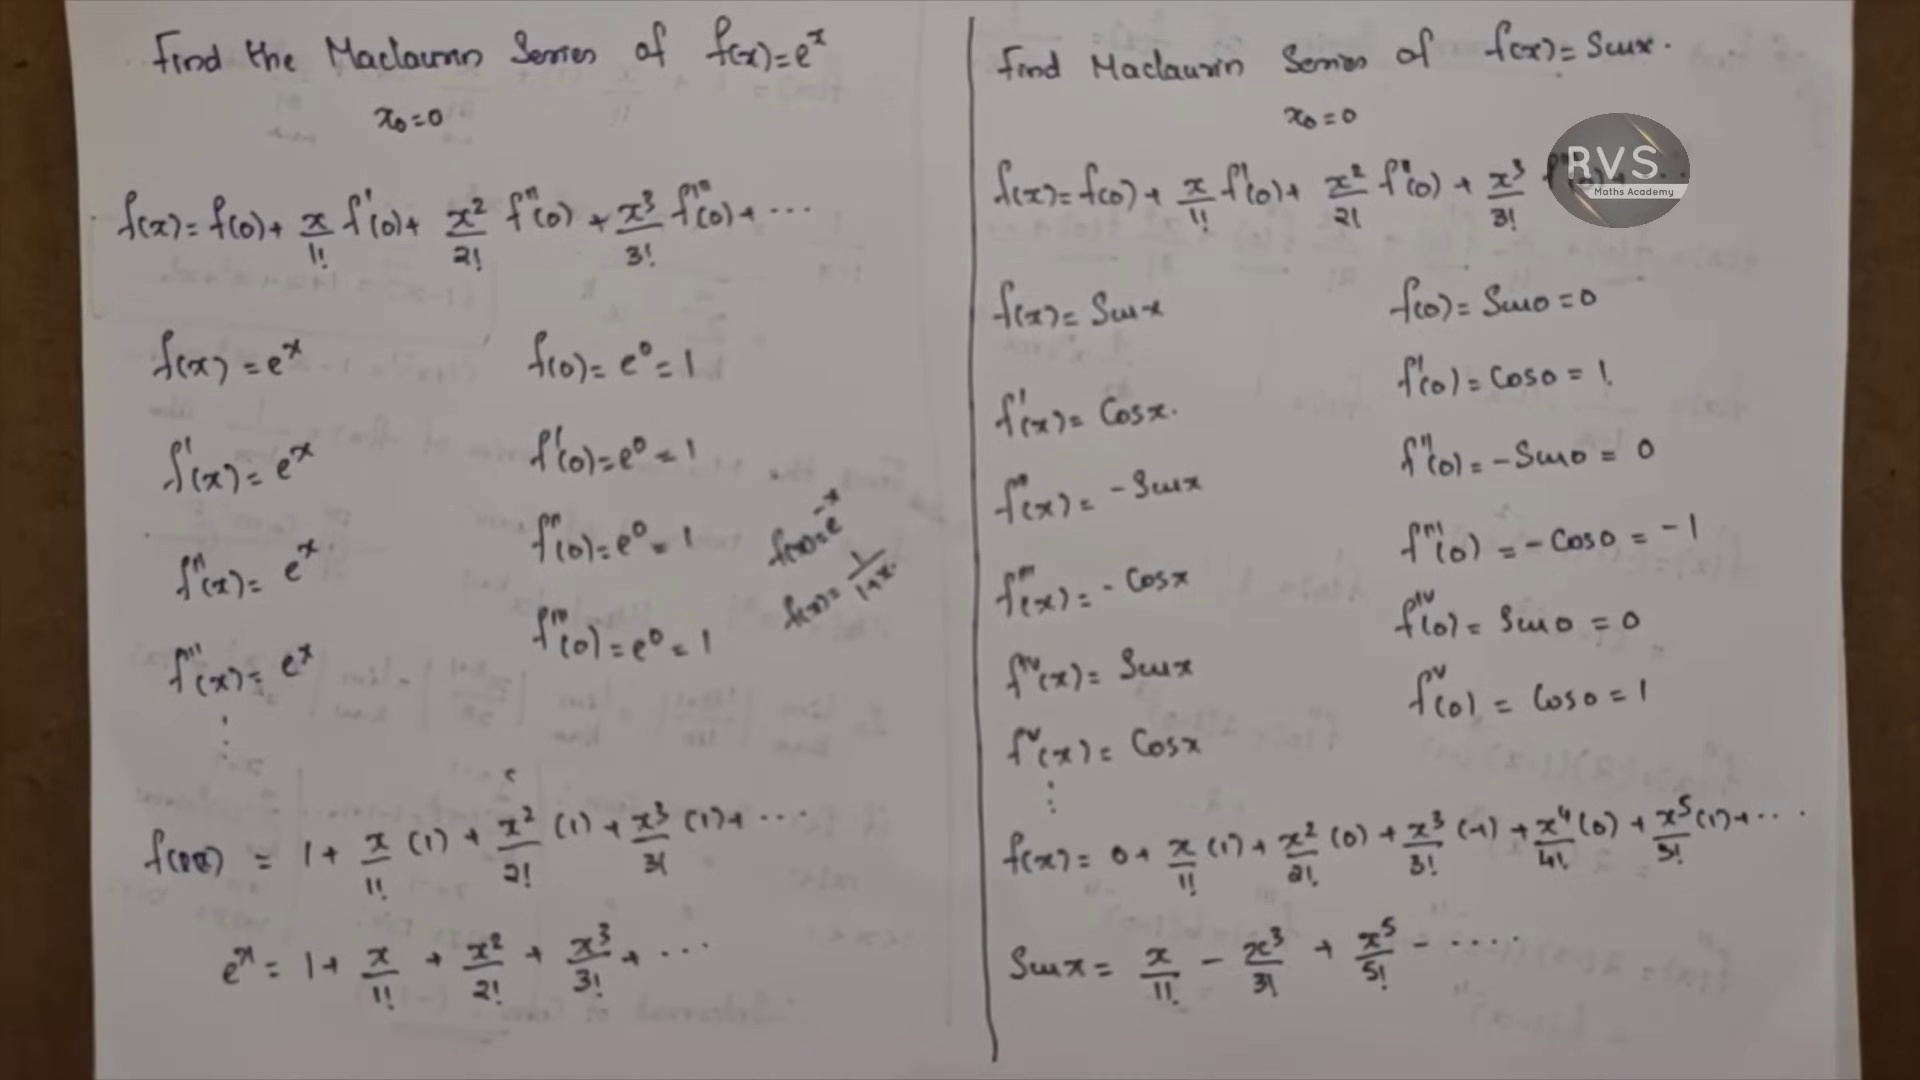 Find the Maclaurin Series of f(x)=e^x
x₀=0
f(x)= f(0)+ x/1! f'(0)+ x²/2! f''(0) + x³/3! f'''(0)+ ...
f(x) = e^x
f(0)= e⁰= 1
f'(x)= e^x
f'(0)=e⁰=1
f''(x)= e^x
f''(0)=e⁰=1
f'''(x)= e^x
f'''(0)=e⁰=1
f(x)=e^-x
f(x)= 1/1+x
f(x) = 1+ x/1! (1) + x²/2! (1) + x³/3! (1)+ ...
e^x = 1+ x/1! + x²/2! + x³/3! + ...
Find Maclaurin Series of f(x)= Sinx.
x₀=0
RVS
Maths Academy
f(x)= f(0)+ x/1! f'(0)+ x²/2! f''(0) + x³/3!
f(x)= Sinx
f(0)= Sin0=0
f'(x)= Cosx.
f'(0)= Cos0= 1
f''(x)= -Sinx
f''(0)= -Sin0= 0
f'''(x)= -Cosx
f'''(0) = -Cos0 = -1
f^iv(x)= Sinx
f^iv(0)= Sin0 = 0
f^v(x)= Cosx
f^v(0) = Cos0=1
f(x)= 0+ x/1! (1)+ x²/2! (0)+ x³/3! (-1)+ x⁴/4! (0)+ x⁵/5! (1)+ ...
Sinx= x/1! - x³/3! + x⁵/5! - ....